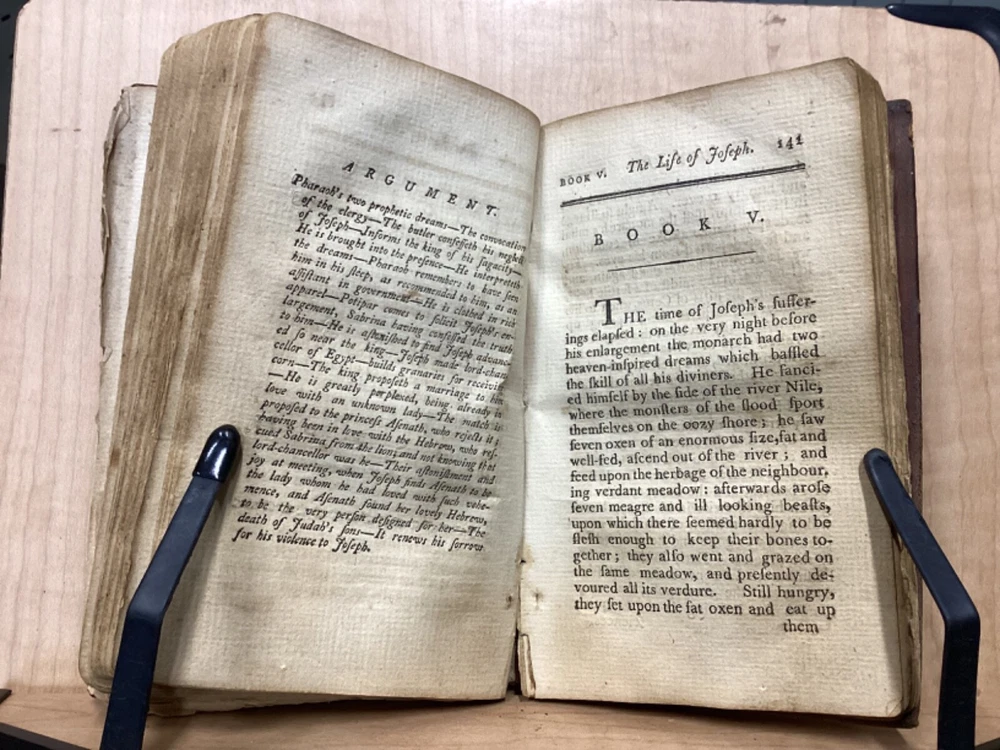 ARGUMENT.
Pharaoh's two prophetic dreams—The convocation
of the clergy—The butler confeſſeth his neglect
of Joſeph—Informs the king of his ſagacity—
He is brought into the preſence—He interpreteth
the dreams—Pharaoh remembers to have ſeen
him in his ſleep, as recommended to him, as an
aſſiſtant in government—He is clothed in rich
apparel—Potipar comes to ſolicit Joſeph's en-
largement, Sabrina having confeſſed the truth
to him—He is aſtoniſhed to find Joſeph advanc-
ed ſo near the king—Joſeph made lord-chan-
cellor of Egypt—builds granaries for receiving
corn—The king propoſeth a marriage to him
—He is greatly perplexed, being already in
love with an unknown lady—The match is
propoſed to the princeſs Aſenath, who rejects it;
having been in love with the Hebrew, who reſ-
cued Sabrina from the lion; and not knowing that
lord-chancellor was he—Their aſtoniſhment and
joy at meeting, when Joſeph finds Aſenath to be
the lady whom he had loved with ſuch vehe-
mence, and Aſenath found her lovely Hebrew,
to be the very perſon deſigned for her—The
death of Judah's ſons—It renews his ſorrows
for his violence to Joſeph.
BOOK V. The Life of Joſeph. 141
BOOK V.
THE time of Joſeph's ſuffer-
ings elapſed: on the very night before
his enlargement the monarch had two
heaven-inſpired dreams which baffled
the ſkill of all his diviners. He fanci-
ed himſelf by the ſide of the river Nile,
where the monſters of the flood ſport
themſelves on the oozy ſhore; he ſaw
ſeven oxen of an enormous ſize, fat and
well-fed, aſcend out of the river; and
feed upon the herbage of the neighbour,
ing verdant meadow: afterwards aroſe
ſeven meagre and ill looking beaſts,
upon which there ſeemed hardly to be
fleſh enough to keep their bones to-
gether; they alſo went and grazed on
the ſame meadow, and preſently de-
voured all its verdure. Still hungry,
they ſet upon the fat oxen and eat up
them